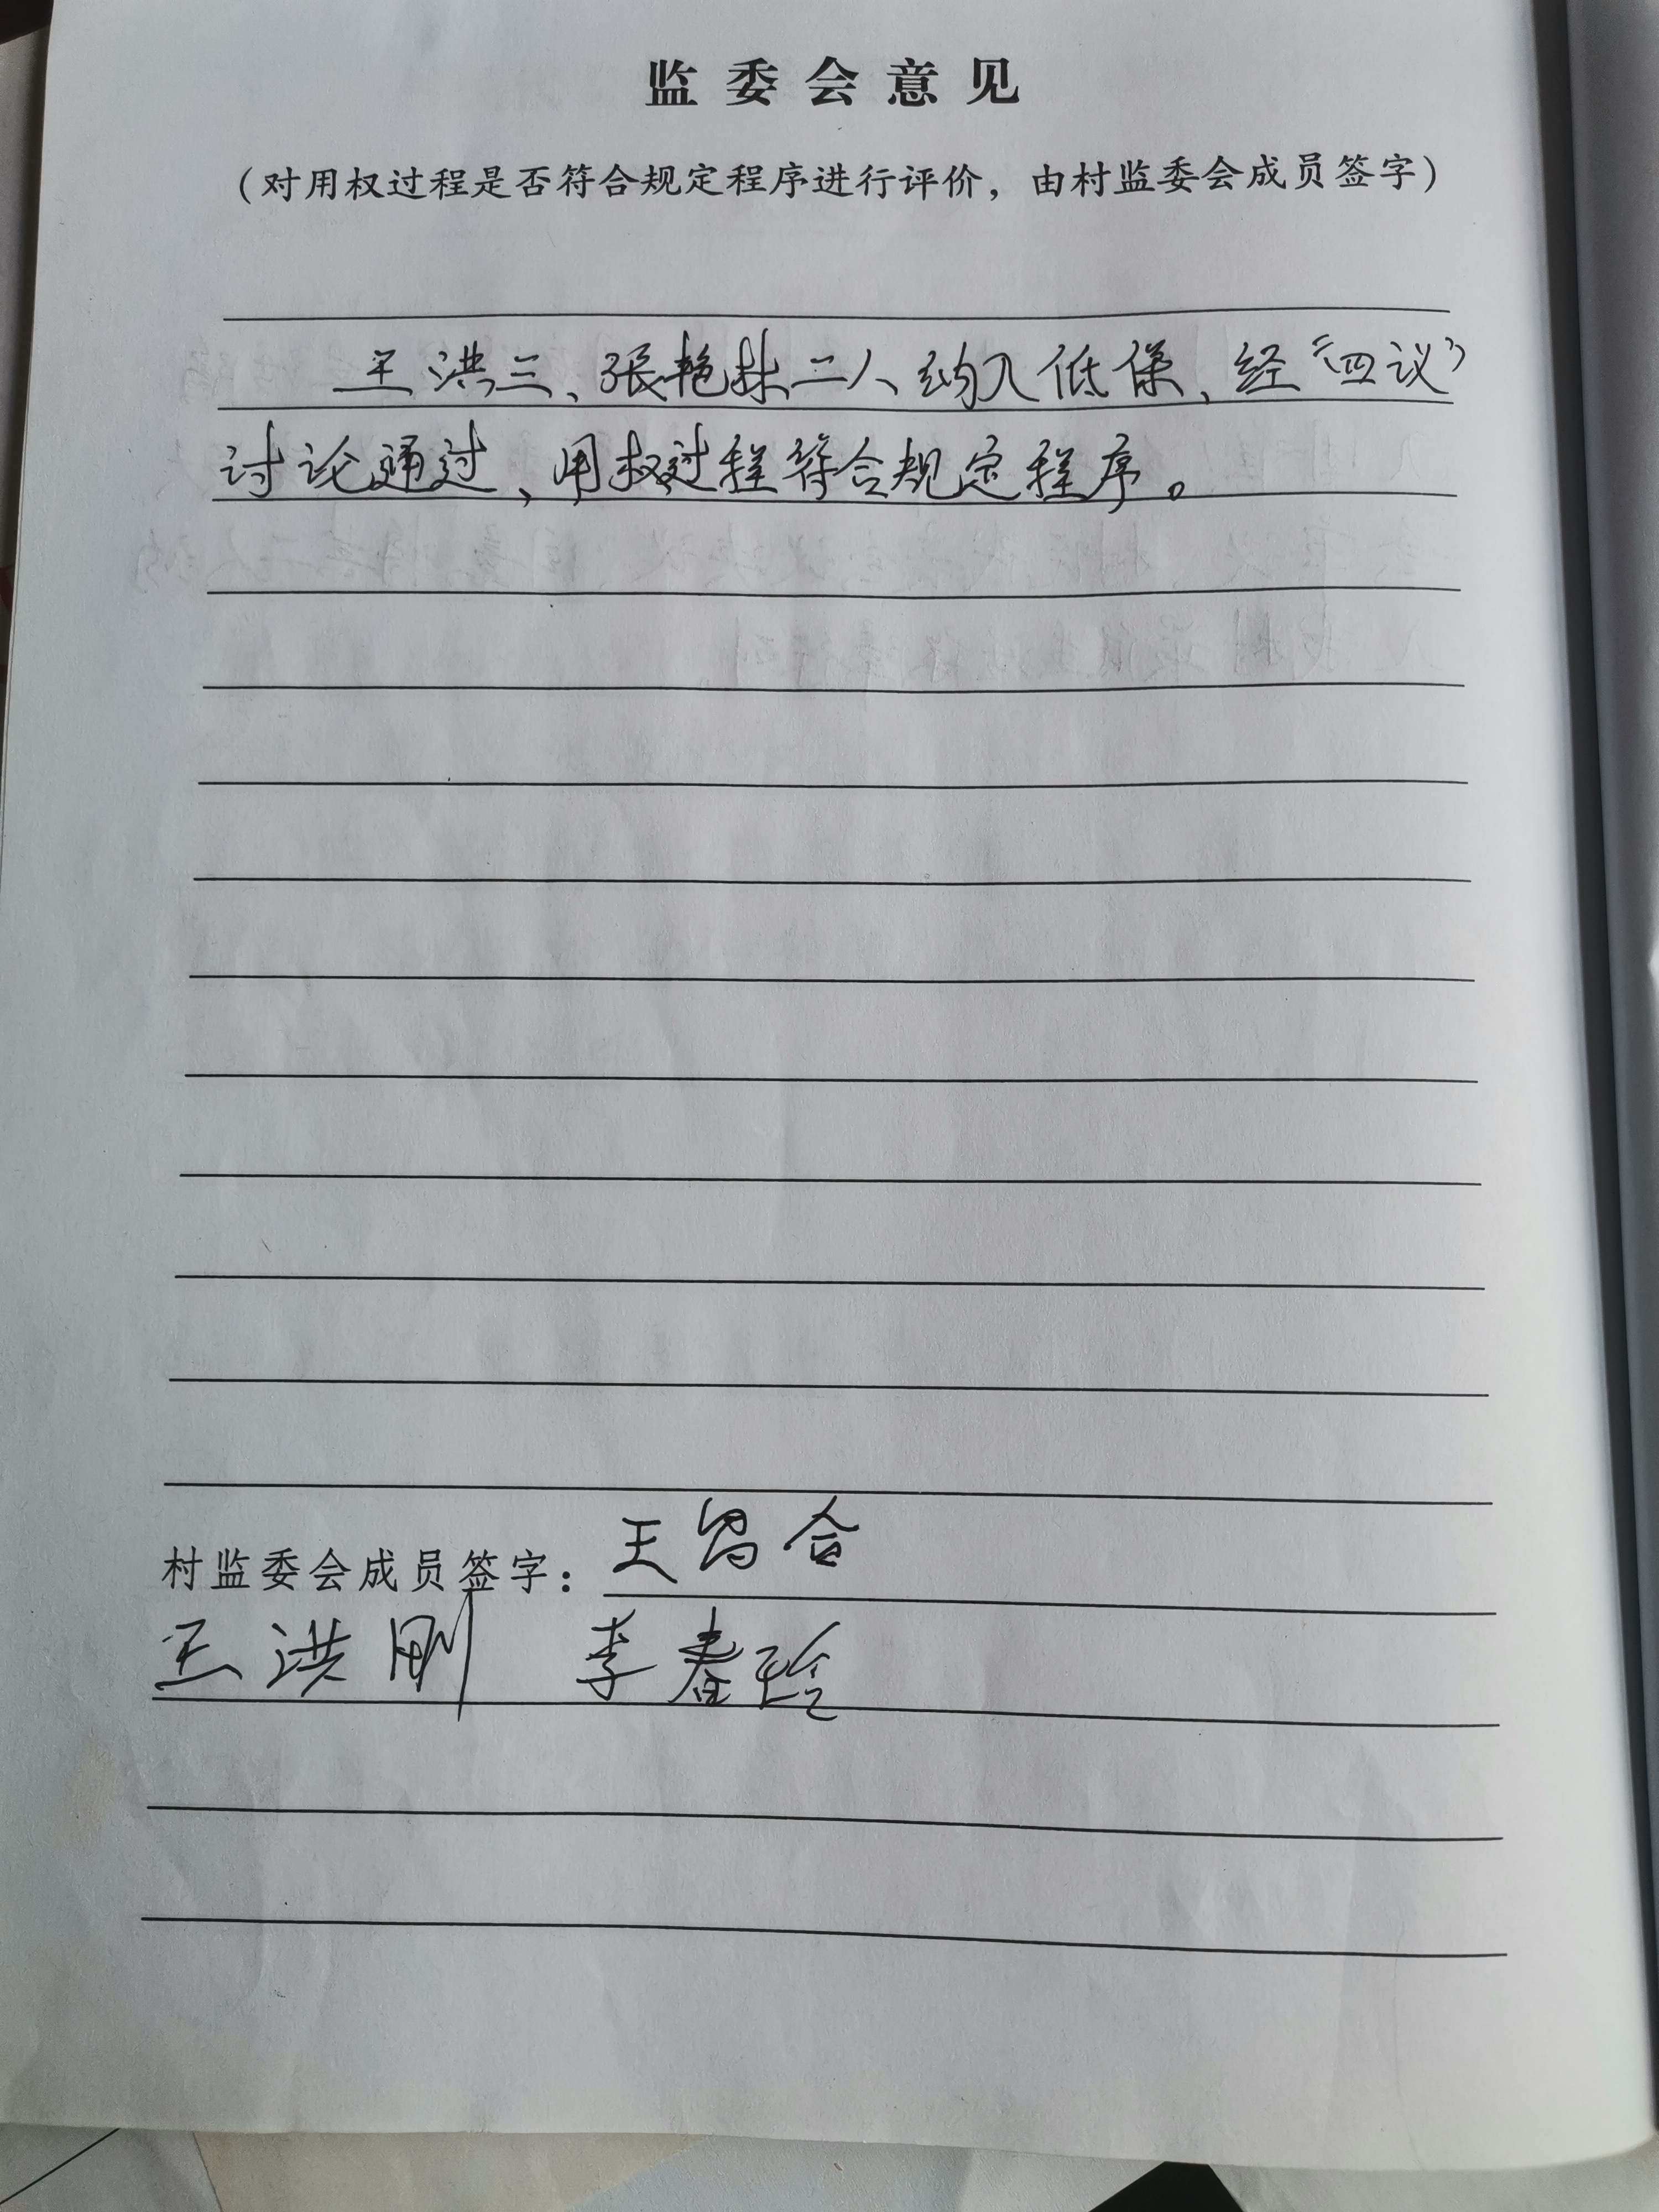 监委会意见
（对用权过程是否符合规定程序进行评价，由村监委会成员签字）
王洪三、张艳林二人纳入低保，经“四议”
讨论通过，用权过程符合规定程序。
村监委会成员签字：王合
王洪刚 李春玲